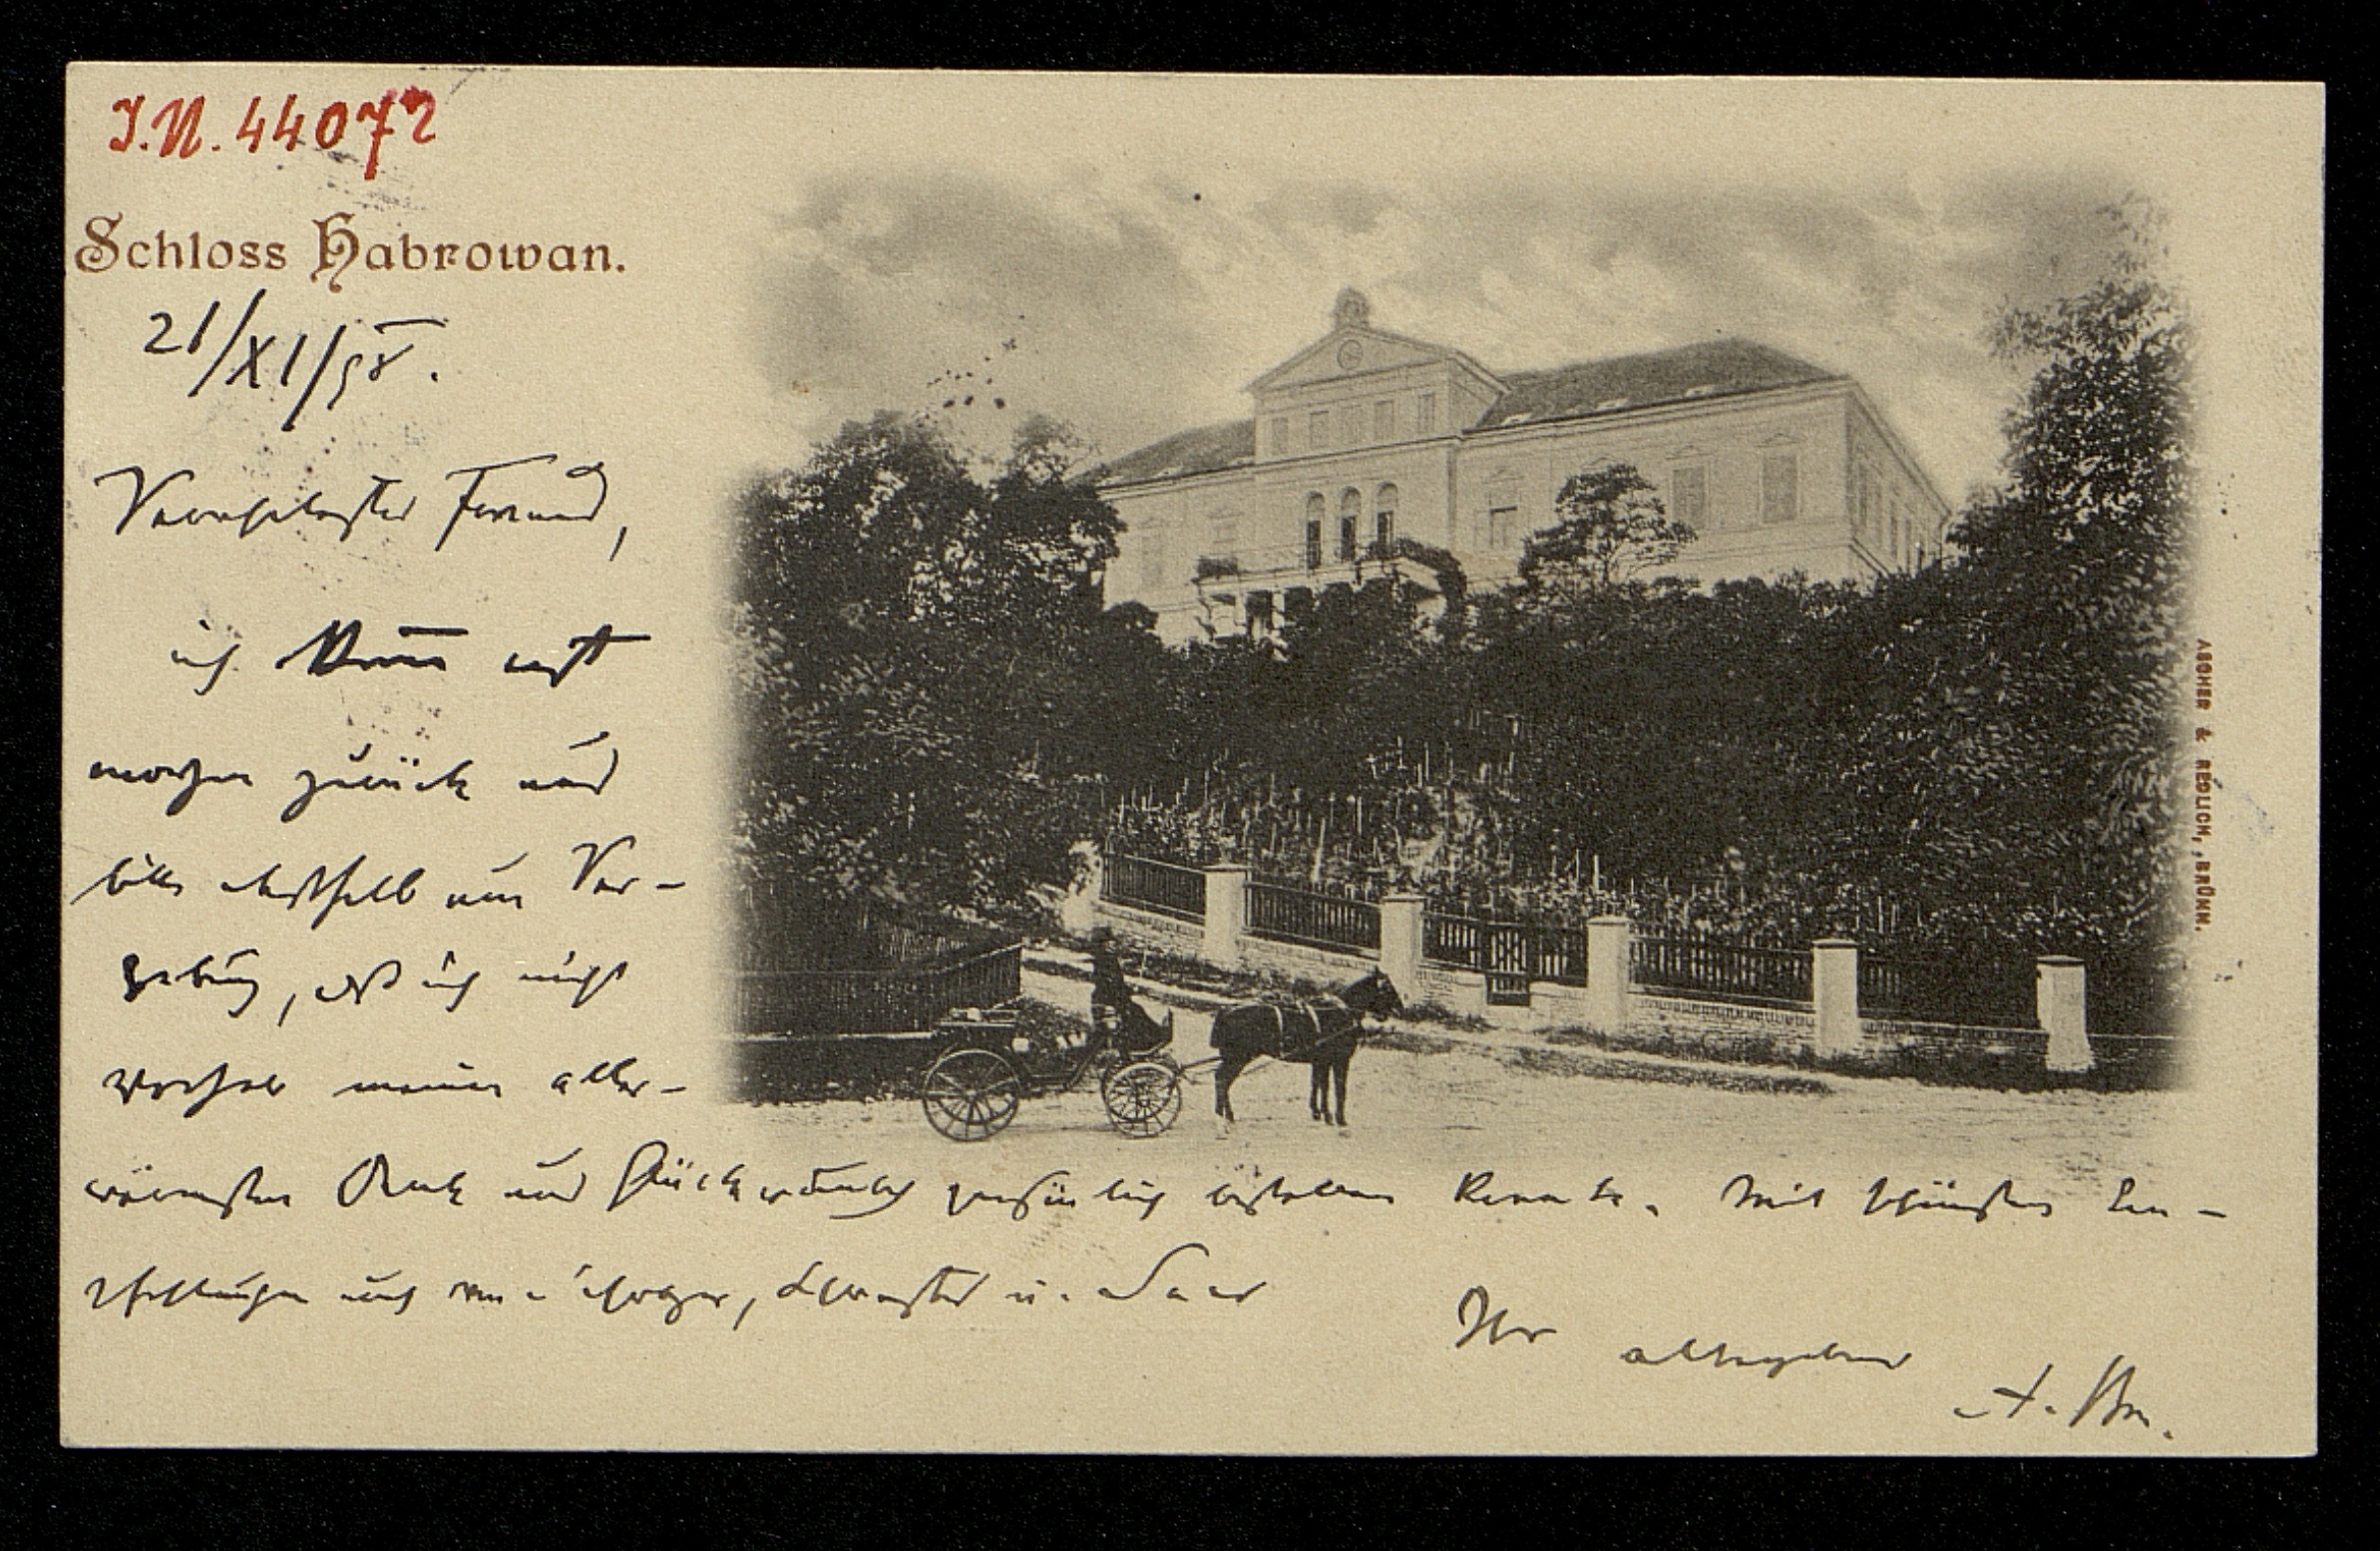 I.N. 44072
Schloss Habrowan.
21/XI/98.
Verehrtester Freund,
ich komme erst
morgen zurück und
bitte deßhalb um Ver-
gebung, daß ich nicht
vorher meinen aller-
wärmsten Dank und Glückwunsch persönlich abstatten konnte. Mit schönsten Em-
pfehlungen auch von Schwager, Schwester u. Saar
Ihr altergebener
A.
ASCHER & REDLICH, BRÜNN.